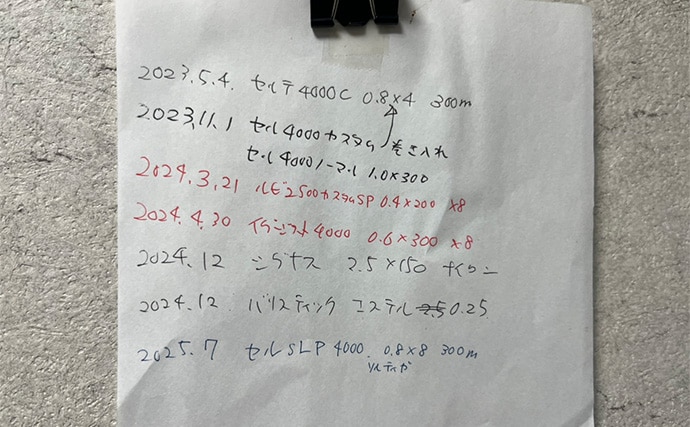 2023.5.4. セルテ4000C 0.8×4 300m
2023.11.1 セル4000カスタム 巻き入れ
セル4000ノーマル 1.0×300
2024.3.21 ルビ2500カスタムSP 0.4×200 ×8
2024.4.30 イグジスト4000 0.6×300 ×8
2024.12 シグナス 2.5×150 ナイロン
2024.12. バリスティック エステル 0.25
2025.7 セルSLP 4000 0.8×8 300m
ソルティガ